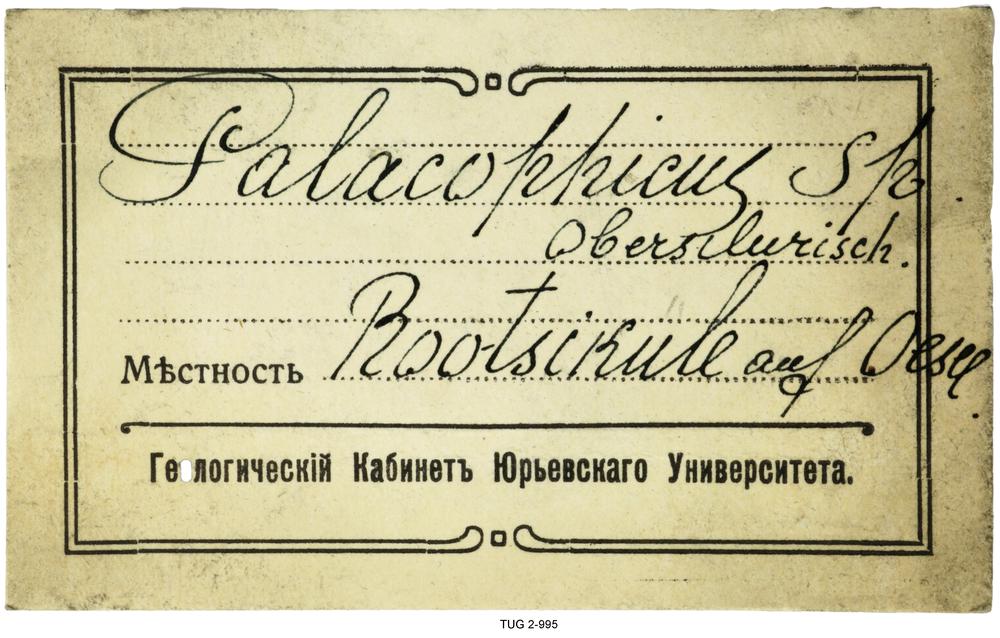 Palaeophicus sp.
Obersilurisch.
Мѣстность Rootsiküle auf Oesel.
Геологическій Кабинетъ Юрьевскаго Университета.
TUG 2-995